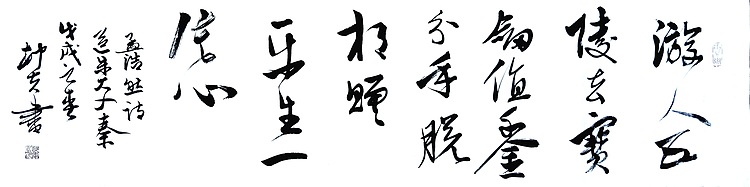 游人五
陵去寶
劍值千金
分手脫
相贈
平生一
片心
孟浩然詩
送朱大入秦
戊戌
書